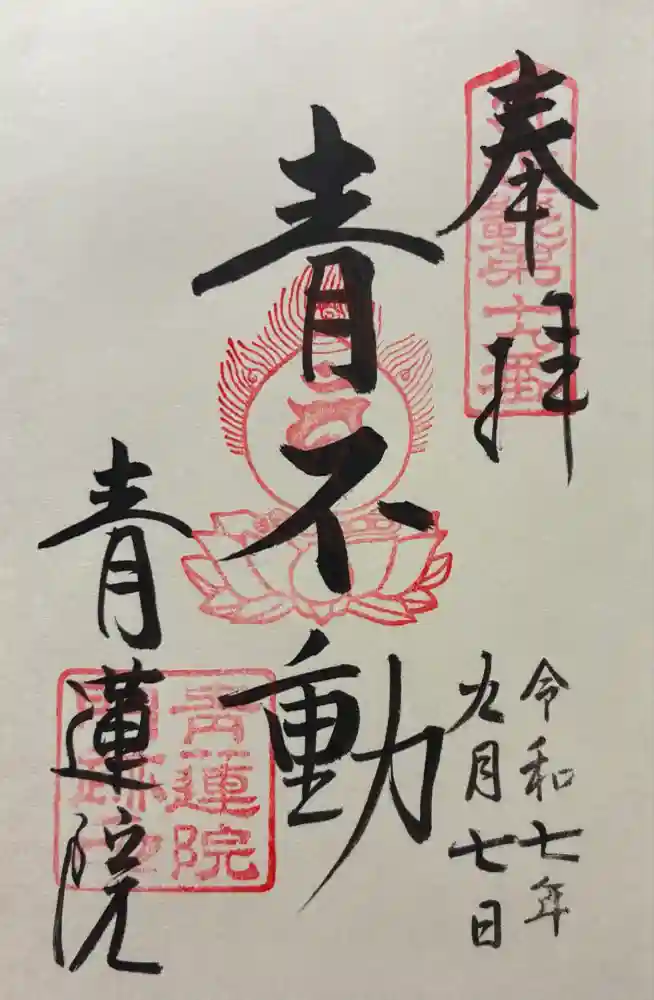 奉拝
令和七年
九月七日
青不動
青蓮院
青蓮院